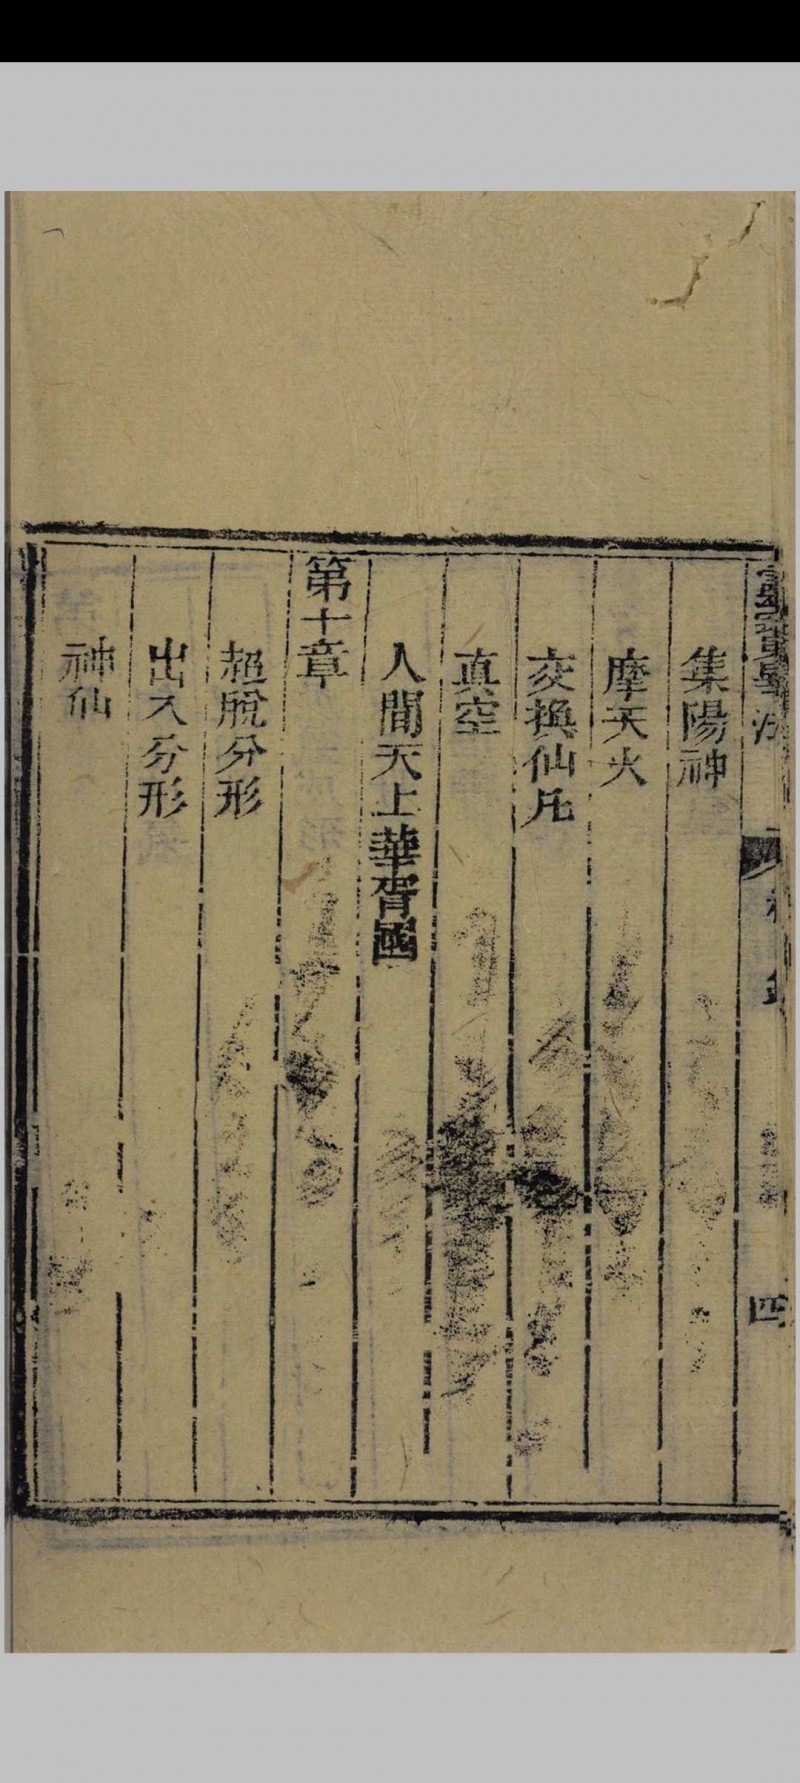 集陽神
摩天火
交換仙凡
真空
人間天上華胥國
第十章
超脫分形
出入分形
神仙
四